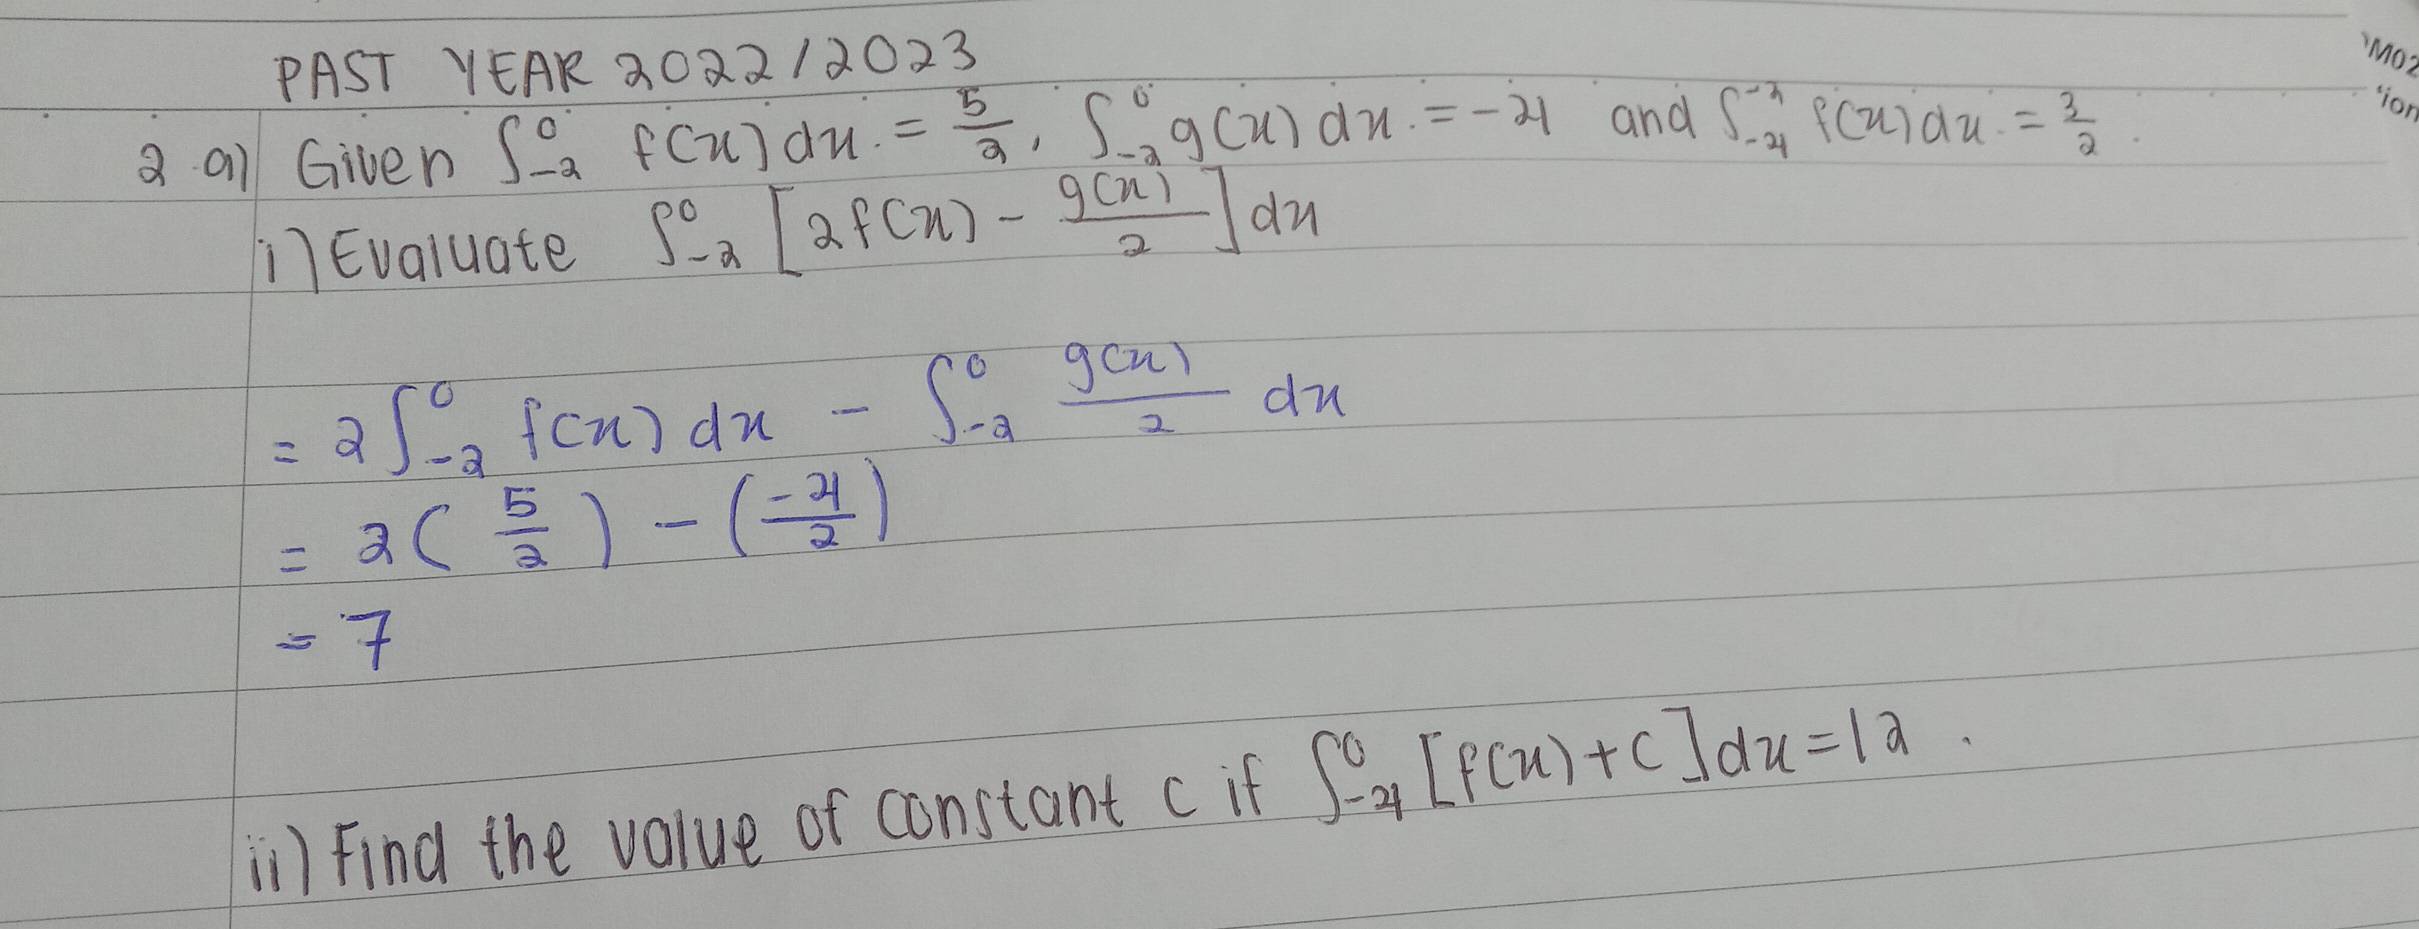 PAST YEAR 2022/2023
2 a) Given ∫₋₂⁰ f(x) dx = 5/2, ∫₋₂⁰ g(x) dx = -4 and ∫₋₄⁻² f(x) dx = 3/2.
i) Evaluate ∫₋₂⁰ [2f(x) - g(x)/2] dx
= 2∫₋₂⁰ f(x) dx - ∫₋₂⁰ g(x)/2 dx
= 2(5/2) - (-4/2)
= 7
ii) Find the value of constant c if ∫₋₄⁰ [f(x)+c] dx = 12.